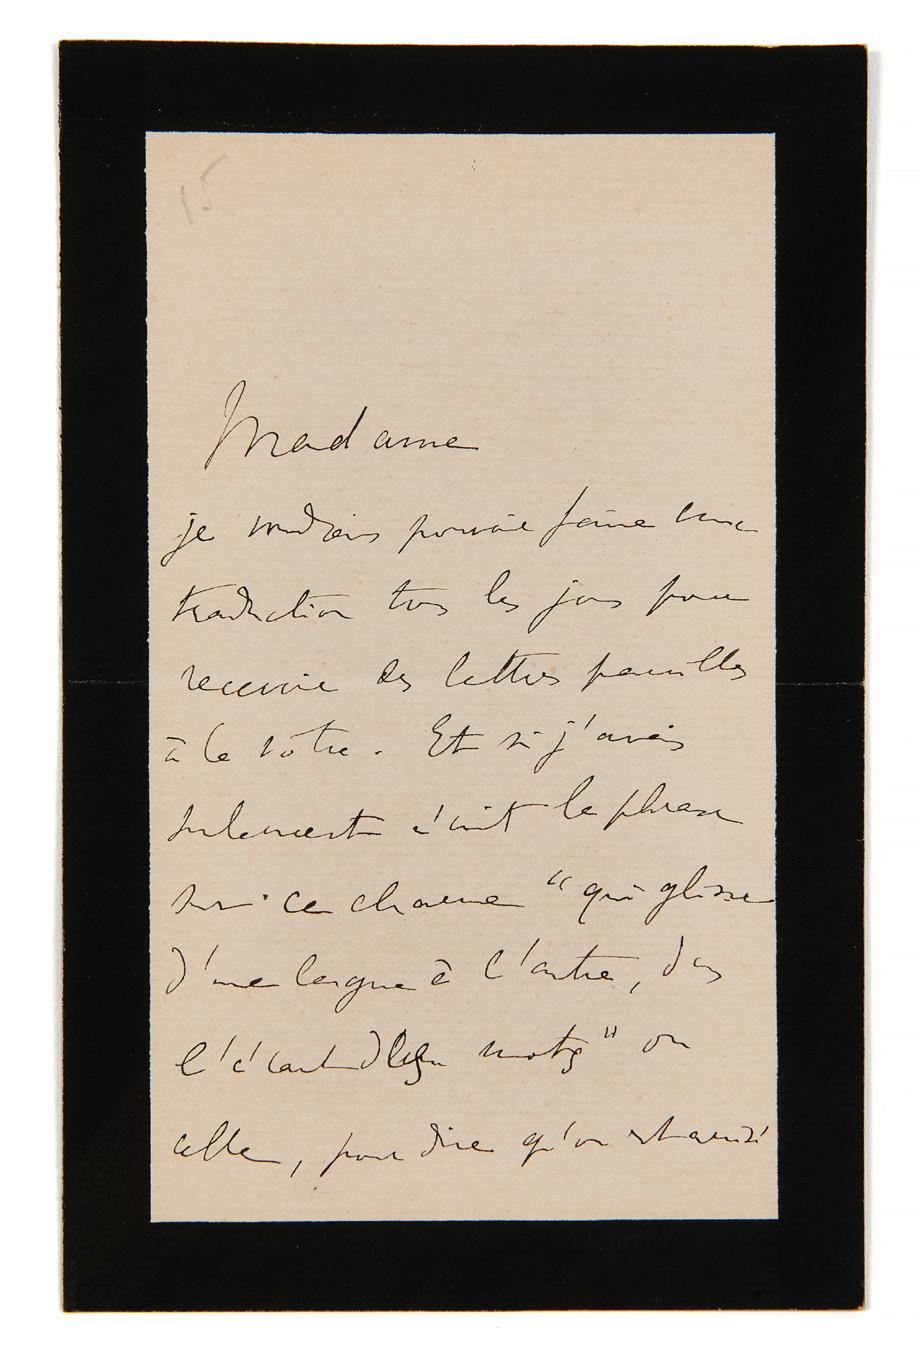 15
Madame
je voudrais pouvoir faire une
traduction tous les jours pour
recevoir des lettres pareilles
à la vôtre. Et si j'avais
seulement écrit la phrase
sur ce charme "qui glisse
d'une langue à l'autre, dans
l'écart des mots" ou
celle, pour dire qu'on est aussi